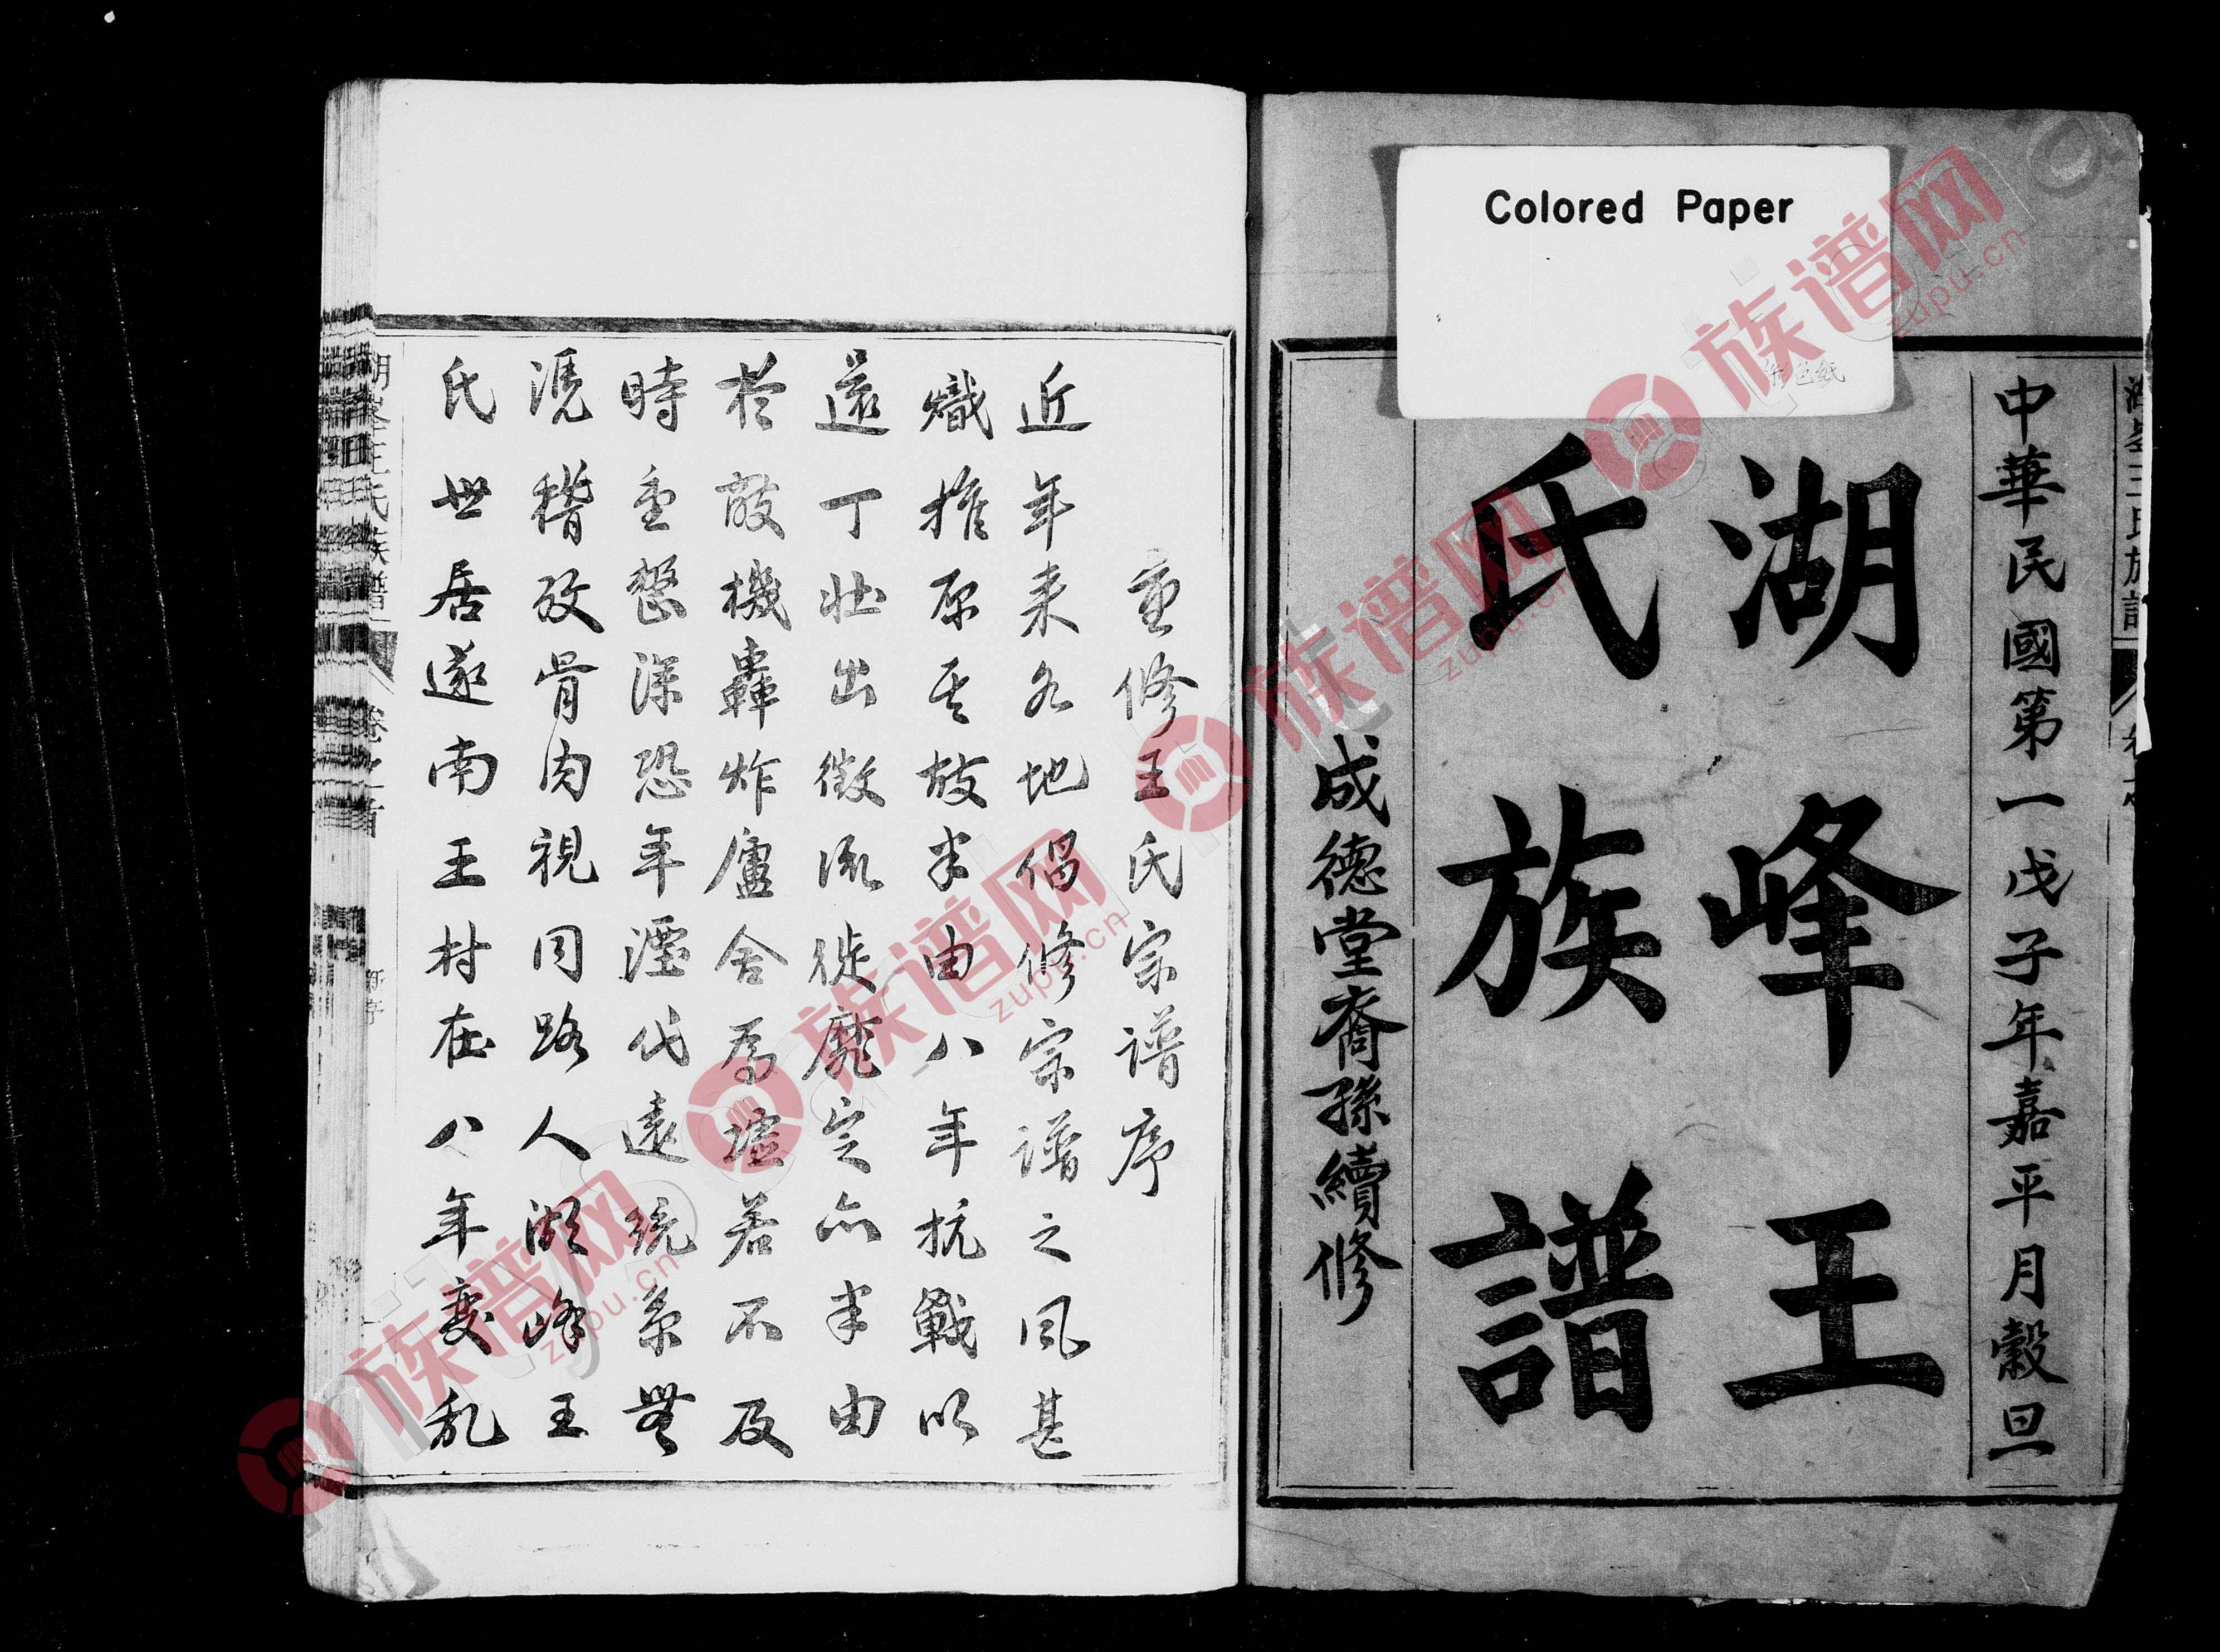 Colored Paper
有色紙
中華民國第一戊子年嘉平月穀旦
湖峰王
氏族譜
成德堂裔孫續修
重修王氏宗譜序
近年来各地倡修宗譜之風甚
熾推原其故半由八年抗戰以
還丁壯出徵流徙靡定亦半由
於敵機轟炸廬舍為墟若不及
時重整深恐年湮代遠統系無
憑稽攷骨肉視同路人湖峰王
氏世居遂南王村在八年变乱
湖峯王氏族譜
卷之首
新序
一
族谱网
zupu.cn
族谱网
zupu.cn
族谱网
zupu.cn
族谱网
zupu.cn